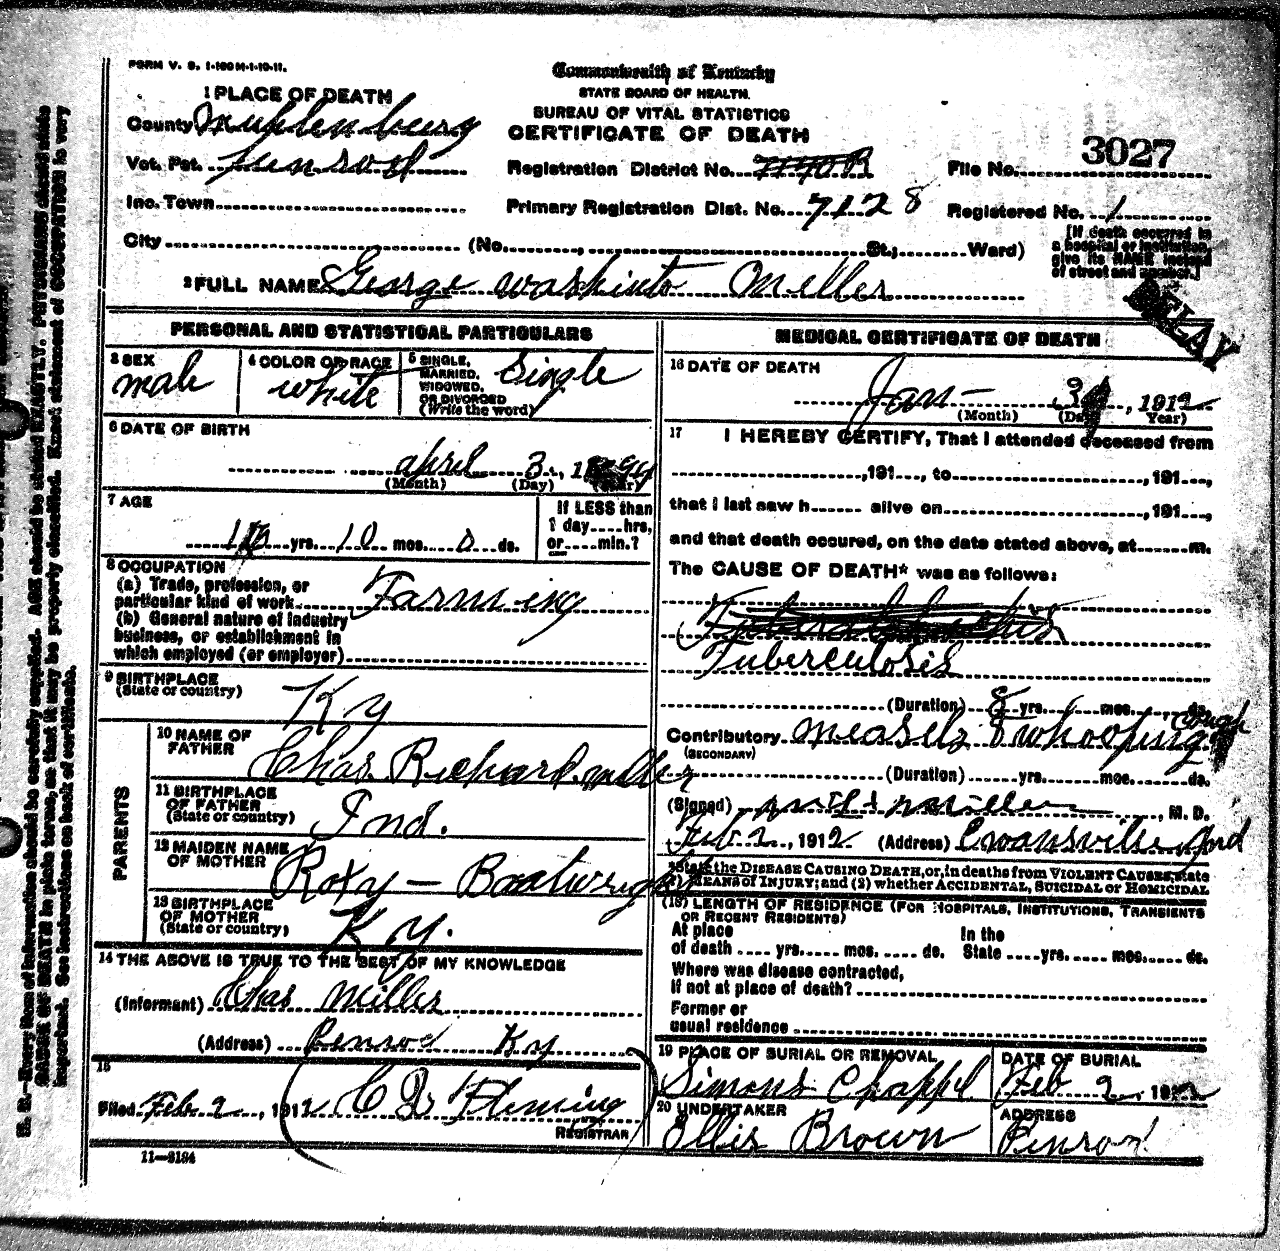 FORM V. S. 1-100M-1-10-11.
Commonwealth of Kentucky
STATE BOARD OF HEALTH.
BUREAU OF VITAL STATISTICS
CERTIFICATE OF DEATH
1 PLACE OF DEATH
County Muhlenburg
Vot. Pct. Penrod
Registration District No.
File No. 3027
Inc. Town
Primary Registration Dist. No. 7128
Registered No. 1
City (No. , St.; Ward)
[If death occurred in
a hospital or institution,
give its NAME instead
of street and number.]
2 FULL NAME George washinto Miller
DELAY
PERSONAL AND STATISTICAL PARTICULARS
3 SEX
male
4 COLOR OR RACE
white
5 SINGLE,
MARRIED,
WIDOWED,
OR DIVORCED
(Write the word)
Single
6 DATE OF BIRTH
april 3, 1
(Month) (Day) (Year)
7 AGE
yrs. 10 mos. 0 ds.
If LESS than
1 day hrs,
or min.?
8 OCCUPATION
(a) Trade, profession, or
particular kind of work Farming
(b) General nature of industry
business, or establishment in
which employed (or employer)
9 BIRTHPLACE
(State or country)
Ky
PARENTS
10 NAME OF
FATHER
Chas. Richard miller
11 BIRTHPLACE
OF FATHER
(State or country)
Ind.
12 MAIDEN NAME
OF MOTHER
Roxy - Boatwright
13 BIRTHPLACE
OF MOTHER
(State or country)
Ky.
14 THE ABOVE IS TRUE TO THE BEST OF MY KNOWLEDGE
(Informant) Chas Miller
(Address) Penrod Ky
15
Filed Feb 2, 1912 Fleming
REGISTRAR
11-8184
MEDICAL CERTIFICATE OF DEATH
16 DATE OF DEATH
Jan - , 1912
(Month) (Day) (Year)
17 I HEREBY CERTIFY, That I attended deceased from
,191 , to ,191 ,
that I last saw h alive on ,191 ,
and that death occured, on the date stated above, at m.
The CAUSE OF DEATH* was as follows:
Tuberculosis
(Duration) 8 yrs. mos. ds.
Contributory measels & whooping cough
(SECONDARY)
(Duration) yrs. mos. ds.
(Signed) miller, M. D.
Feb 2, 1912 (Address) Evansville
*State the DISEASE CAUSING DEATH, or, in deaths from VIOLENT CAUSES, state
(1) MEANS of INJURY; and (2) whether ACCIDENTAL, SUICIDAL or HOMICIDAL
(18) LENGTH OF RESIDENCE (FOR HOSPITALS, INSTITUTIONS, TRANSIENTS
OR RECENT RESIDENTS)
At place In the
of death yrs. mos. ds. State yrs. mos. ds.
Where was disease contracted,
If not at place of death?
Former or
usual residence
19 PLACE OF BURIAL OR REMOVAL
Simons Chappel
DATE OF BURIAL
Feb 2, 1912
20 UNDERTAKER
Ellis Brown
ADDRESS
Penrod
N. B.—Every item of information should be carefully supplied. AGE should be stated EXACTLY. PHYSICIANS should state
CAUSE OF DEATH in plain terms, so that it may be properly classified. Exact statement of OCCUPATION is very
important. See instructions on back of certificate.